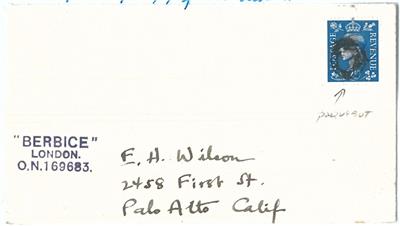 POSTAGE REVENUE
paquebot
"BERBICE"
LONDON.
O.N.169683.
E. H. Wilson
2458 First St.
Palo Alto Calif